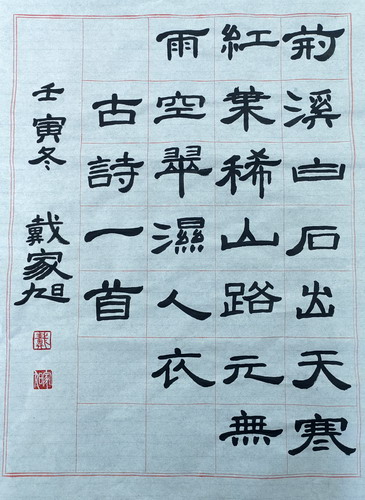 荊溪白石出天寒
紅葉稀山路元無
雨空翠濕人衣
古詩一首
壬寅冬 戴家旭